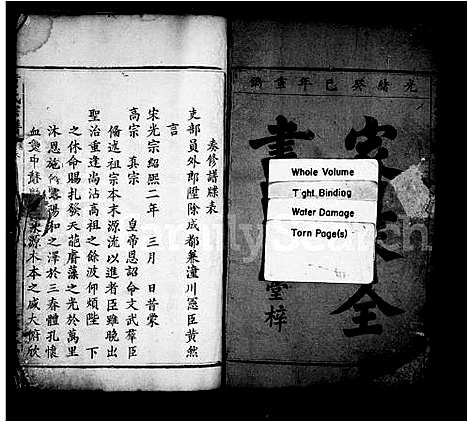 光緒癸巳年重鐫
家
全
書
堂梓
Whole Volume
Tight Binding
Water Damage
Torn Page(s)
FamilySearch
奏修譜牒表
吏部員外郎陞除成都兼潼川憲臣黄然
言
宋光宗紹熙二年 三月 日昔蒙
高宗 真宗 皇帝恩詔命文武羣臣
備述祖宗本末源流以進者臣雖晚出
聖治重逢尚沾高祖之餘波仰煩陛 下
之休命賜扎發天龍膺藻之光於萬里
沐恩施 露陽和之澤於三春體孔懷
血 中 水源木本之咸大俯欣